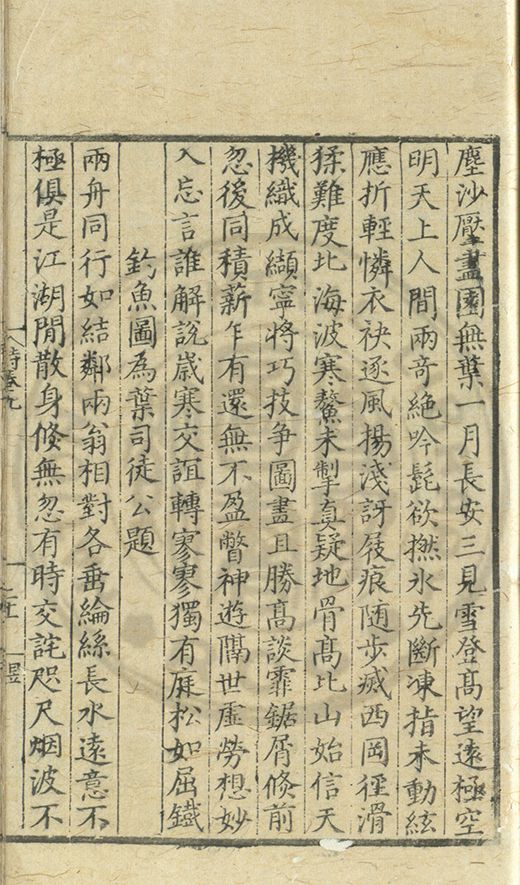 塵沙壓盡園無葉一月長安三見雪登髙望遠極空
明天上人間兩奇絶吟髭欲撚氷先斷凍指未動絃
應折輕憐衣袂逐風揚淺訝屐痕随歩滅西岡徑滑
猱難度北海波寒鰲未掣直疑地骨髙比山始信天
機織成纈寧將巧技争圖畫且勝髙談霏鋸屑倐前
忽後同積薪乍有還無不盈瞥神遊隔世虛勞想妙
入忘言誰解說嵗寒交誼轉寥寥獨有庭松如屈鐵
釣魚圖為葉司徒公題
兩舟同行如結鄰兩翁相對各垂綸絲長水遠意不
極俱是江湖閒散身倐無忽有時交詫咫尺烟波不
詩卷九